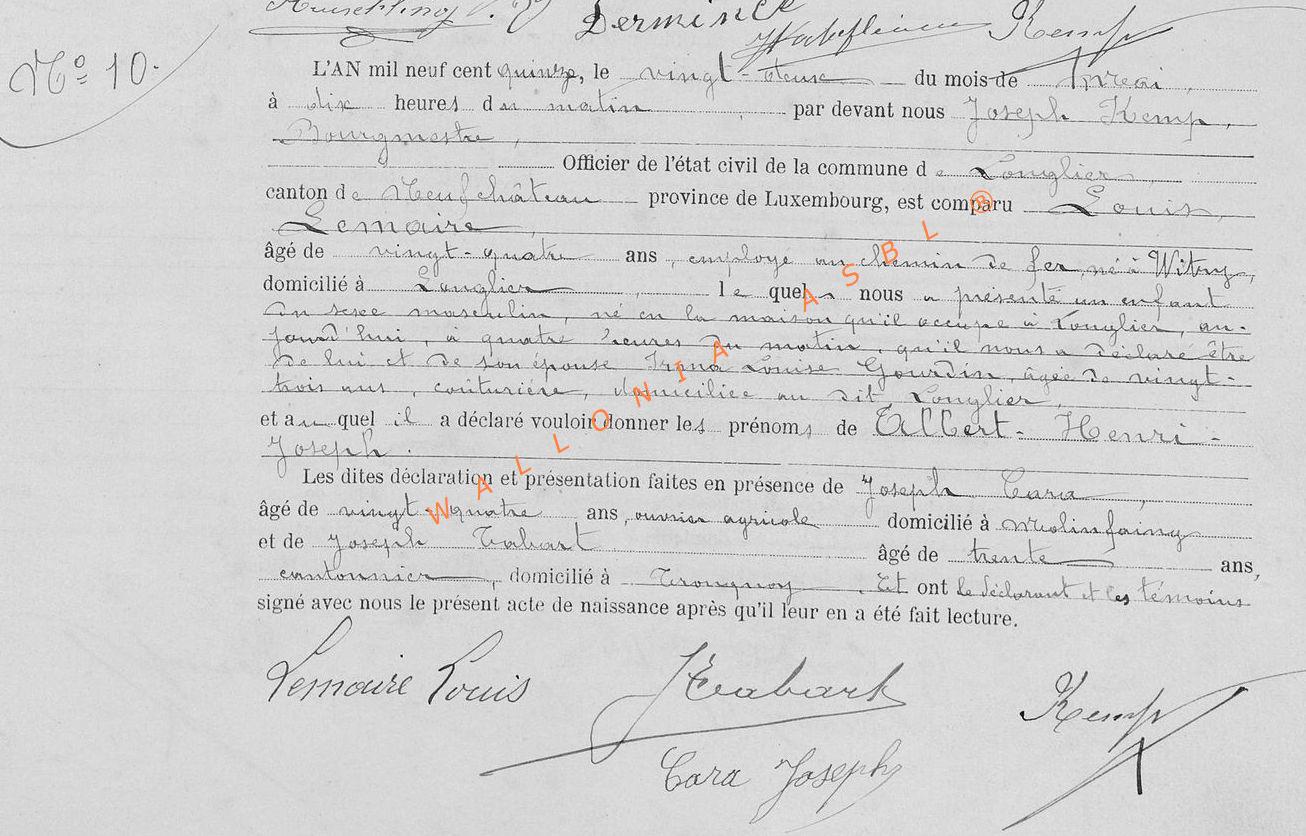 Dermince Kemp
N° 10.
L'AN mil neuf cent quinze, le vingt-deux du mois de
à dix heures du matin par devant nous Joseph Kemp,
Bourgmestre,
Officier de l'état civil de la commune de Longlier
canton de Neufchâteau province de Luxembourg, est comparu Louis
Lemaire,
âgé de vingt-quatre ans, employé au chemin de fer, né à Witry,
domicilié à Longlier le quel nous a présenté un enfant
du sexe masculin, né en la maison qu'il occupe à Longlier, au-
jourd'hui, à quatre heures du matin, qu'il nous a déclaré être
de lui et de son épouse Irma Louise Gourdin, âgée de vingt-
trois ans, couturière, domiciliée au dit Longlier,
et au quel il a déclaré vouloir donner les prénoms de Albert-Henri-
Joseph.
Les dites déclaration et présentation faites en présence de Joseph Cara,
âgé de vingt-quatre ans, ouvrier agricole domicilié à Molinfaing
et de Joseph Tabart âgé de trente ans,
cantonnier, domicilié à Tronquoy. Et ont le déclarant et les témoins
signé avec nous le présent acte de naissance après qu'il leur en a été fait lecture.
Lemaire Louis J Tabart Kemp
Cara Joseph
WALLONIA ASBL ®